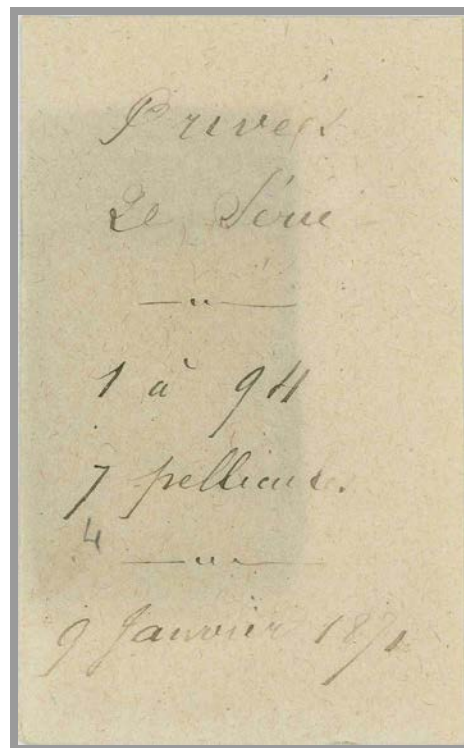 Privées
2e Série
1 à 94
7 pellicules
4
9 Janvier 1871